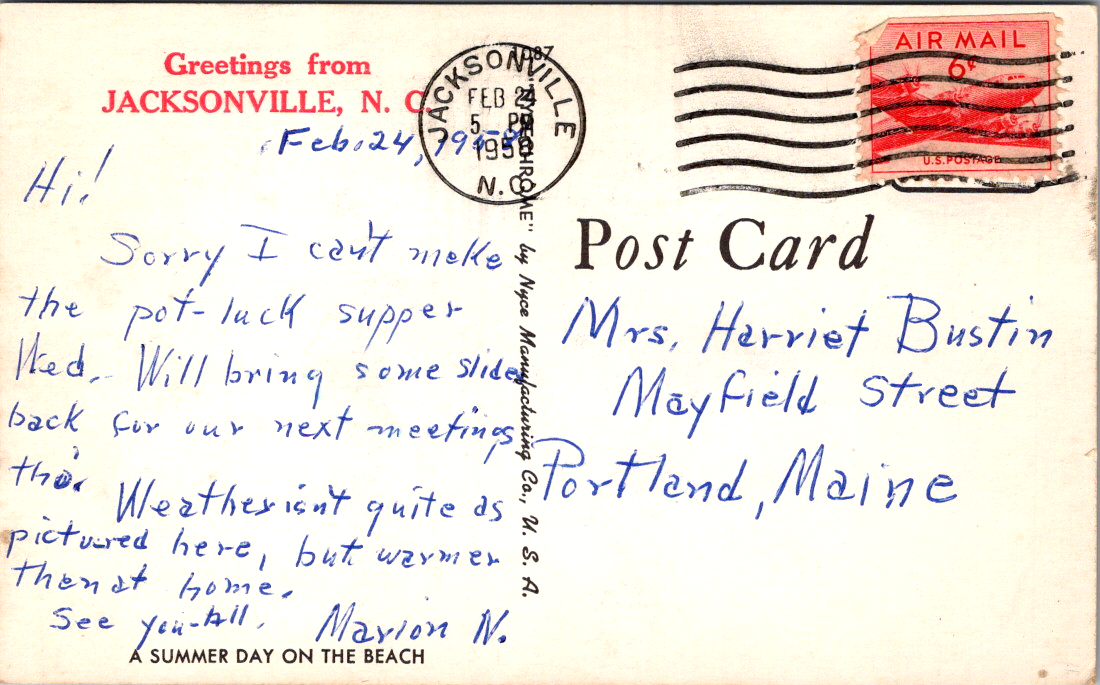 Greetings from
JACKSONVILLE, N. C.
Feb. 24, 1958
Hi!
Sorry I can't make
the pot-luck supper
Wed. Will bring some slides
back for our next meetings
tho'.
Weather isn't quite as
pictured here, but warmer
then at home.
See you-All.
Marion N.
A SUMMER DAY ON THE BEACH
JACKSONVILLE
FEB 24
5 PM
1958
N.C.
by Nyce Manufacturing Co., U. S. A.
AIR MAIL
6¢
U.S. POSTAGE
Post Card
Mrs. Harriet Bustin
Mayfield Street
Portland, Maine